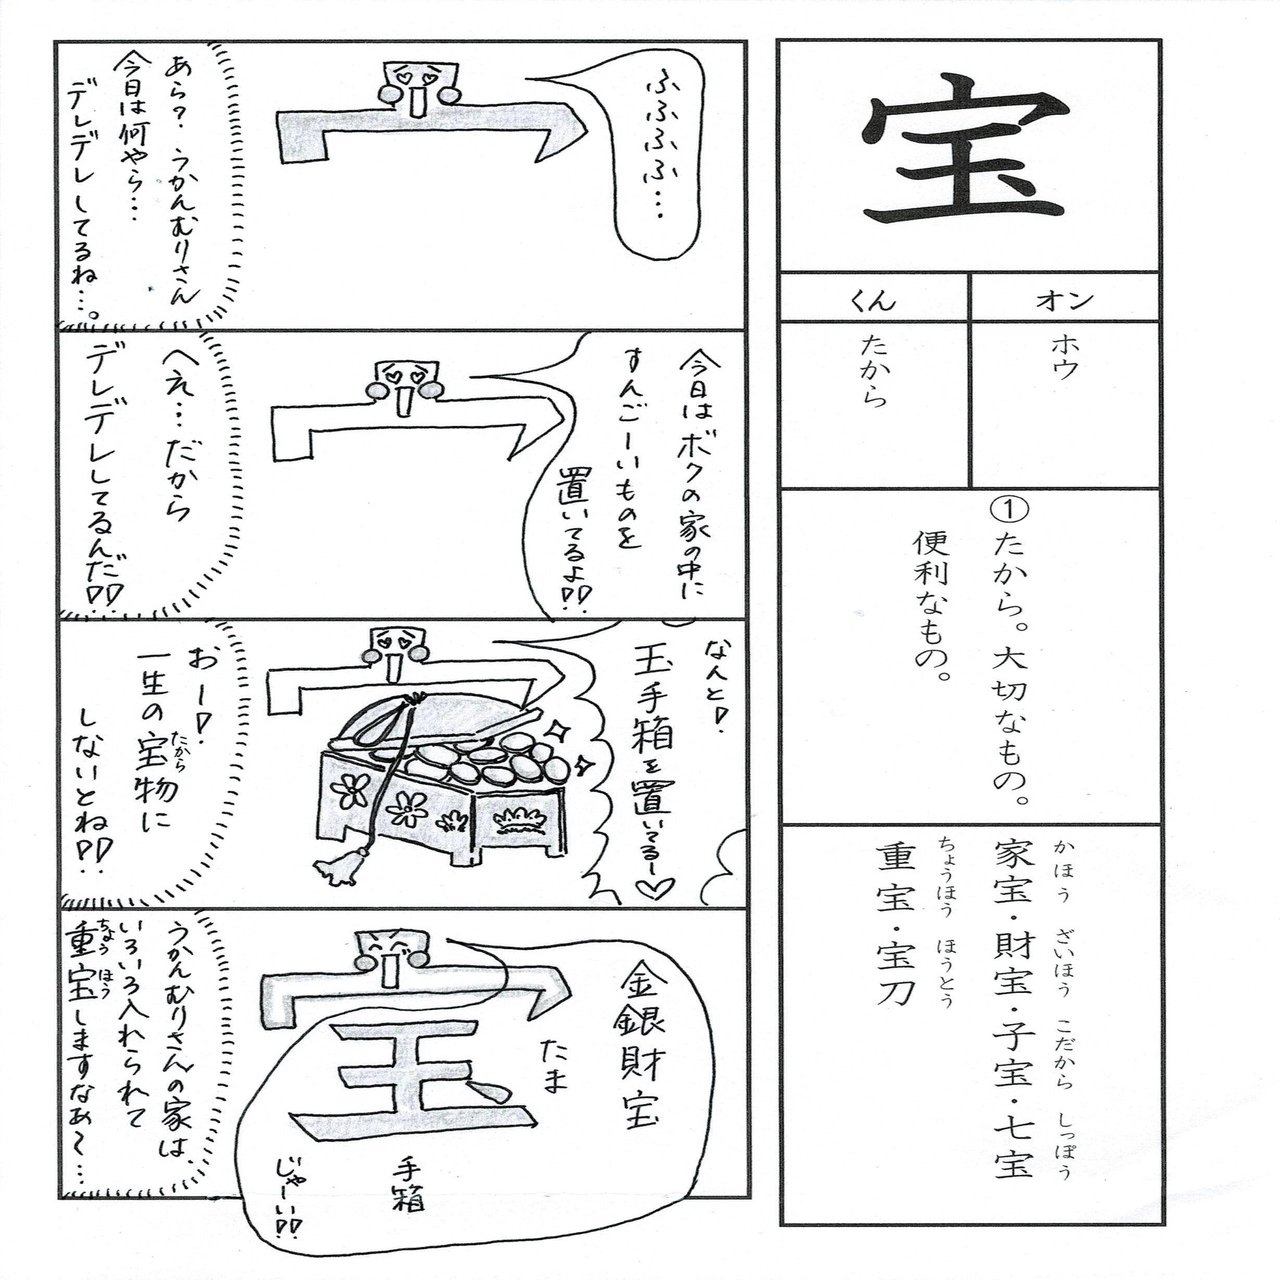 宝
オン
くん
ホウ
たから
①たから。大切なもの。
便利なもの。
かほう ざいほう こだから しっぽう
家宝・財宝・子宝・七宝
ちょうほう ほうとう
重宝・宝刀
ふふふふ…
あら?うかんむりさん
今日は何やら…
デレデレしてるね…。
今日はボクの家の中に
すんごーいものを
置いてるよ!!
へえ…だから
デレデレしてるんだ!!
なんと!
玉手箱を置いてるー♡
おー!
一生の宝物に
たから
しないとね!!
金銀財宝
たま
玉
手箱
じゃーい!!
うかんむりさんの家は、
いろいろ入れられて
ちょうほう
重宝しますなあ〜…